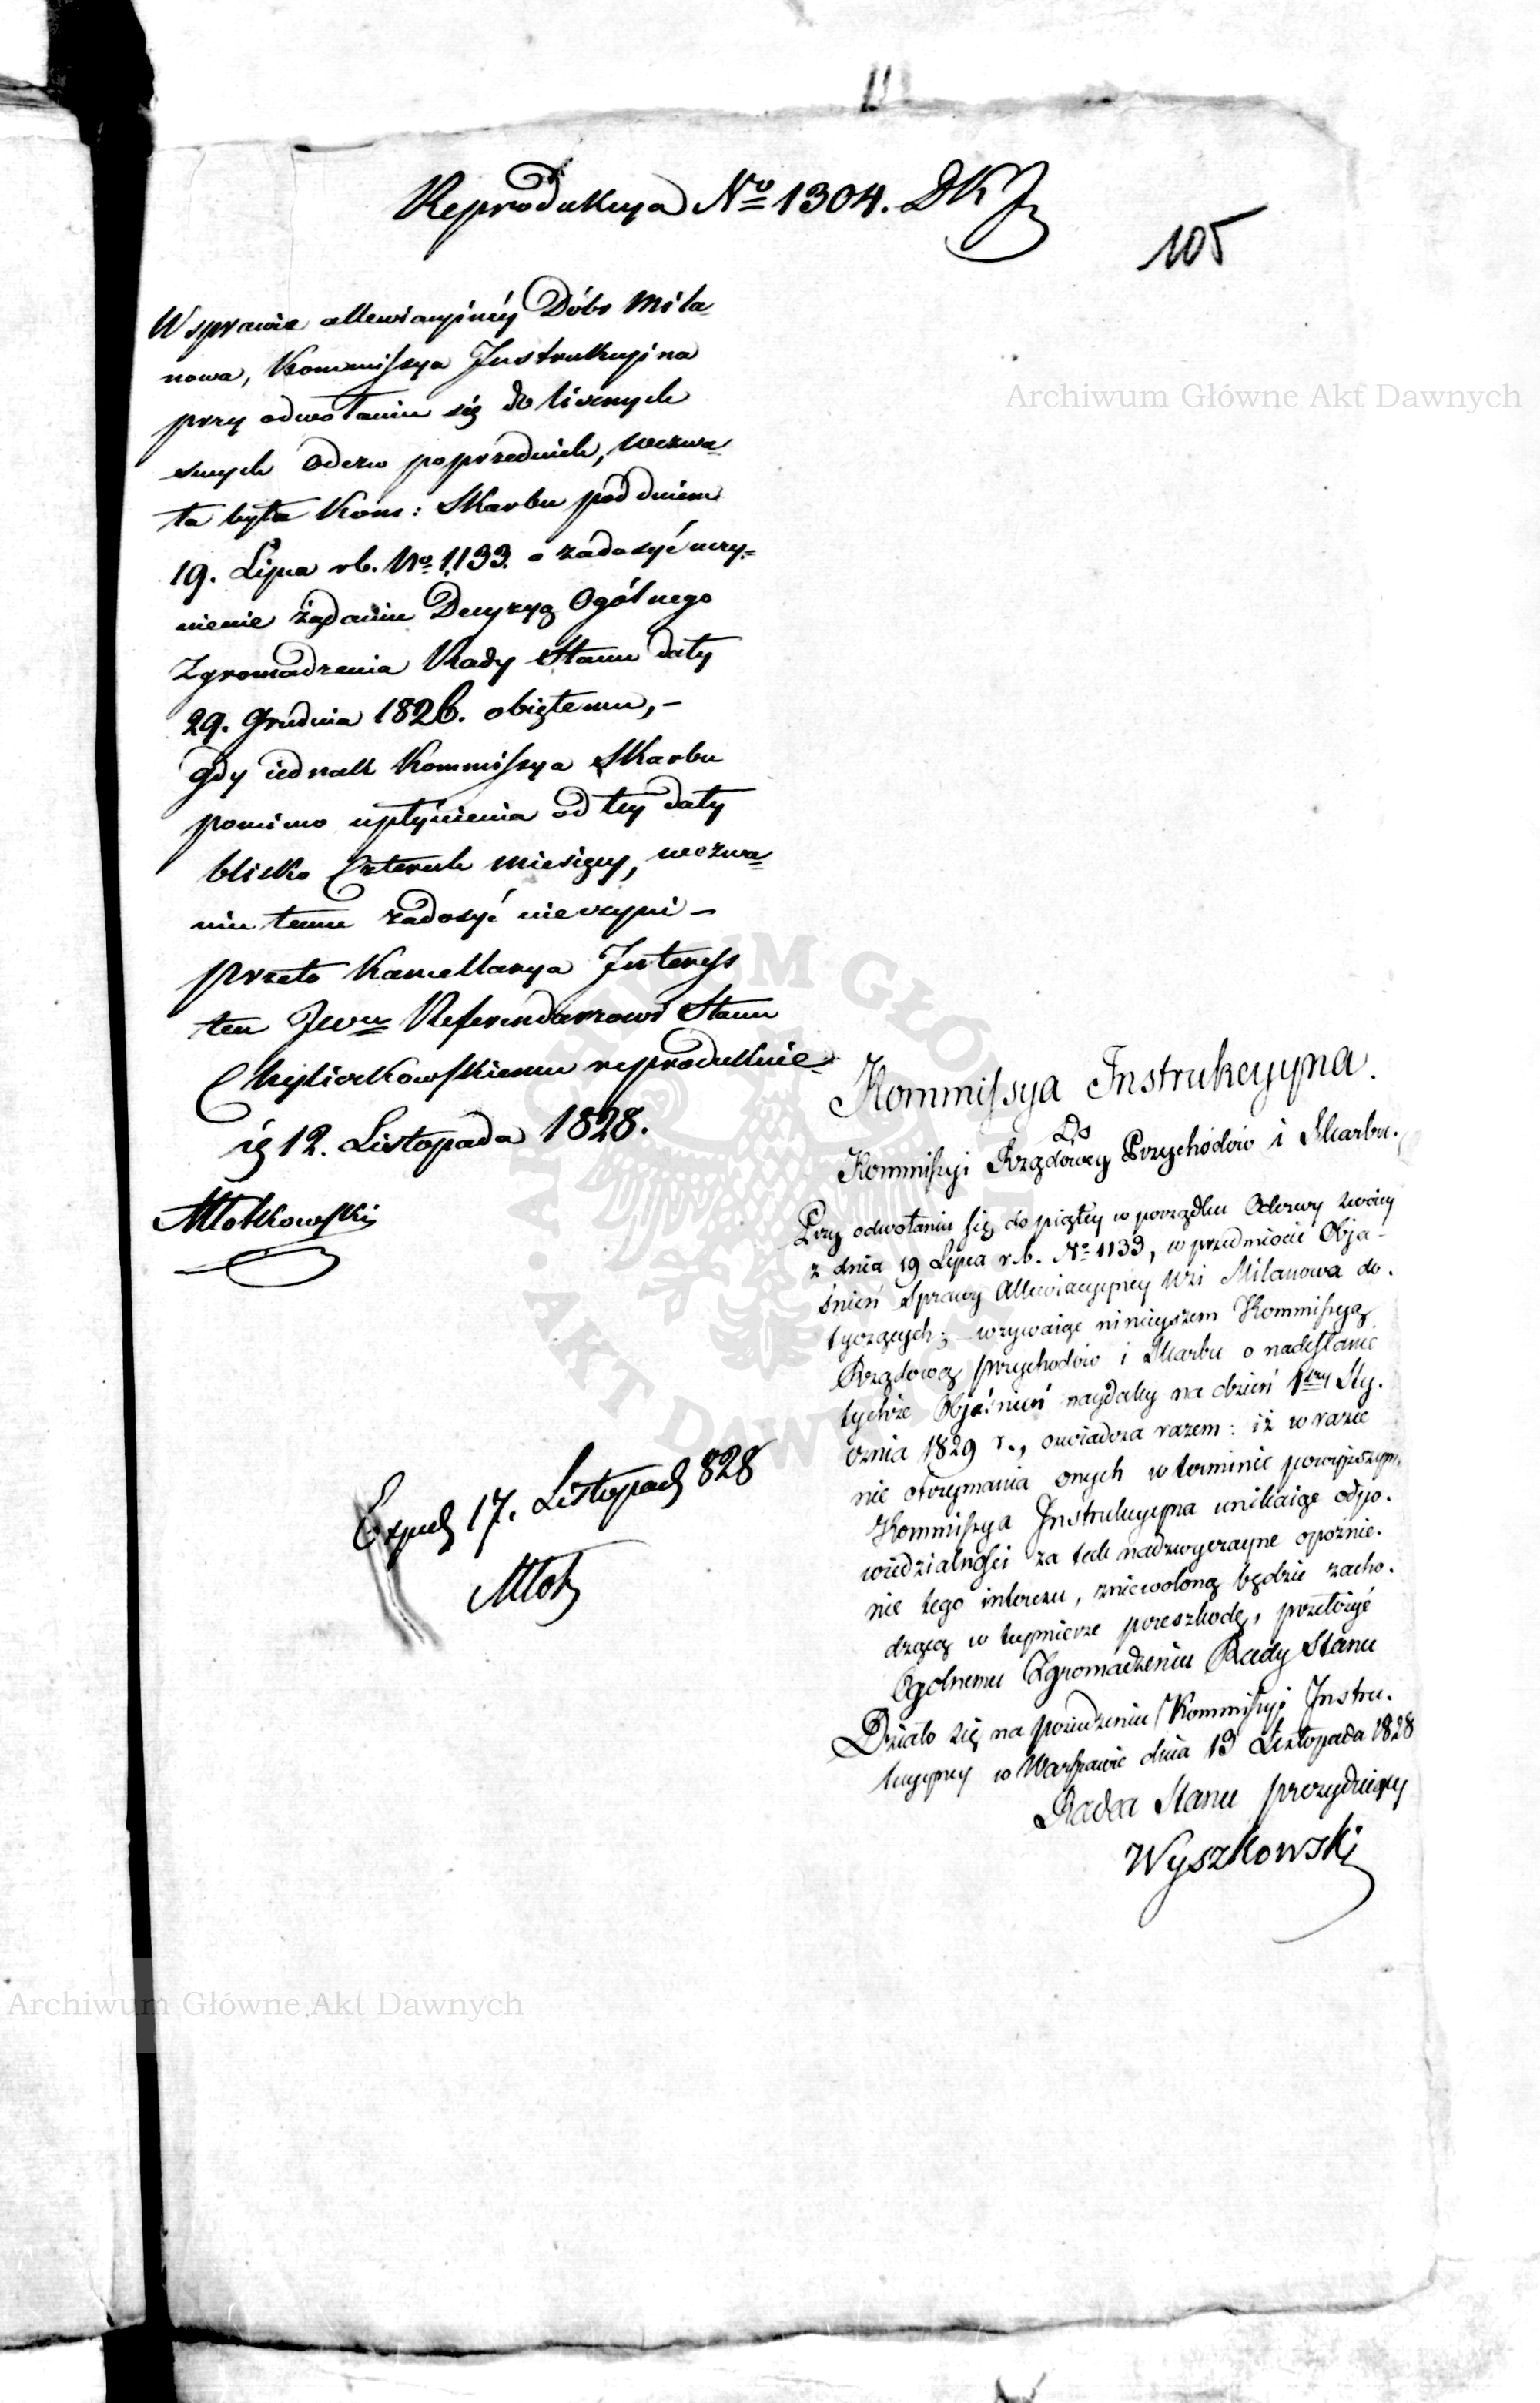 Reprodukcya No 1304. DKJ
105
W sprawie allewiacyjnéy Dóbr Mila-
nowa, Kommissya Instrukcyina
przy odwołaniu się do licznych
swych Odezw poprzednich, wezwa-
ła była Kom: Skarbu pod dniem
19. Lipca rb. No 1133. o zadosyć uczy-
nienie żądaniu Decyzyą Ogólnego
Zgromadzenia Rady Stanu daty
29. Grudnia 1826. obiętemu, –
gdy iednak Kommissya Skarbu
pomimo upłynienia od tey daty
blisko Czterech miesięcy, wezwa-
niu temu zadosyć nieczyni –
przeto Kancellarya Interess
ten JWu Referendarzowi Stanu
Chyliczkowskiemu reprodukuie
ię 12. Listopada 1828.
Młotkowski
Exped 17. Listopad 828
Młot
Kommissya Instrukcyyna.
Do
Kommissyi Rządowey Przychodów i Skarbu.
Przy odwołaniu się do piątey w porządku Odezwy swoiey
z dnia 19 Lipca r.b. No 1133, w przedmiocie Obja-
śnień Sprawy Allewiacyyney Wsi Milanowa do.
tyczących; wzywaiąc ninieyszem Kommissyą
Rządową Przychodów i Skarbu o nadesłanie
tychże Objaśnień naydaley na dzień 1szy Sty.
cznia 1829 r., oświadcza razem: iż w razie
nie otrzymania onych w terminie powyższym,
Kommissya Instrukcyyna unikaiąc odpo.
wiedzialności za tak nadzwyczayne opóźnie.
nie tego interesu, zniewoloną będzie zacho.
dzącą w teymierze przeszkodę, przełożyć
Ogólnemu Zgromadzeniu Rady Stanu
Działo się na posiedzeniu Kommissyi Instru.
kcyyney w Warszawie dnia 13 Listopada 1828
Radca Stanu prezyduiący
Wyszkowski
Archiwum Główne Akt Dawnych
ARCHIWUM GŁÓWNE AKT DAWNYCH
Archiwum Główne Akt Dawnych